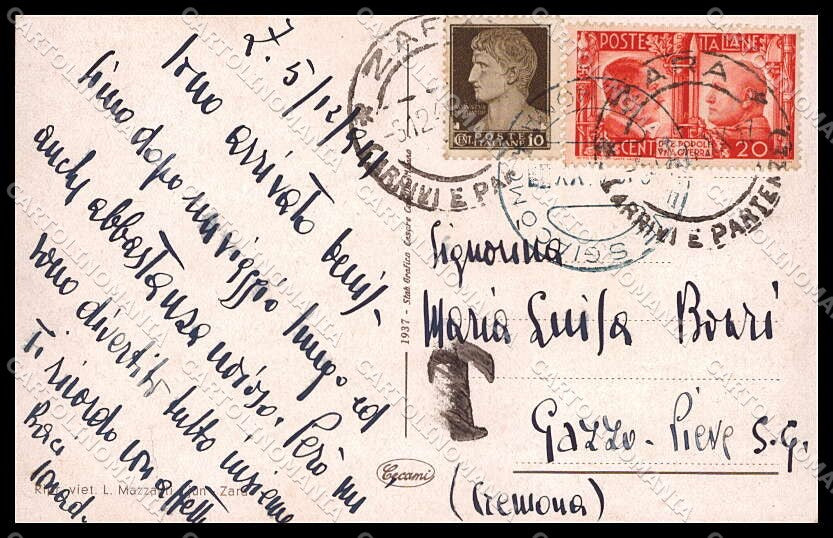 Z. 5/12/941
Sono arrivato benis-
simo dopo un viaggio lungo ed
anche abbastanza noioso. Però mi
sono divertito tutto insieme
Ti ricordo con affetto
Baci
Corrado
Signorina
Maria Luisa Bonri
Gazzo - Pieve S. G.
(Cremona)
T
POSTE ITALIANE
CENT 20
DUE POPOLI
UNA GUERRA
CENT. POSTE ITALIANE 10
ARRIVI E PARTENZE
ARRIVI E PAR
1937 - Stab. Grafico Cesare
Cecami
L. Mazza Zara
CARTOLINOMANIA